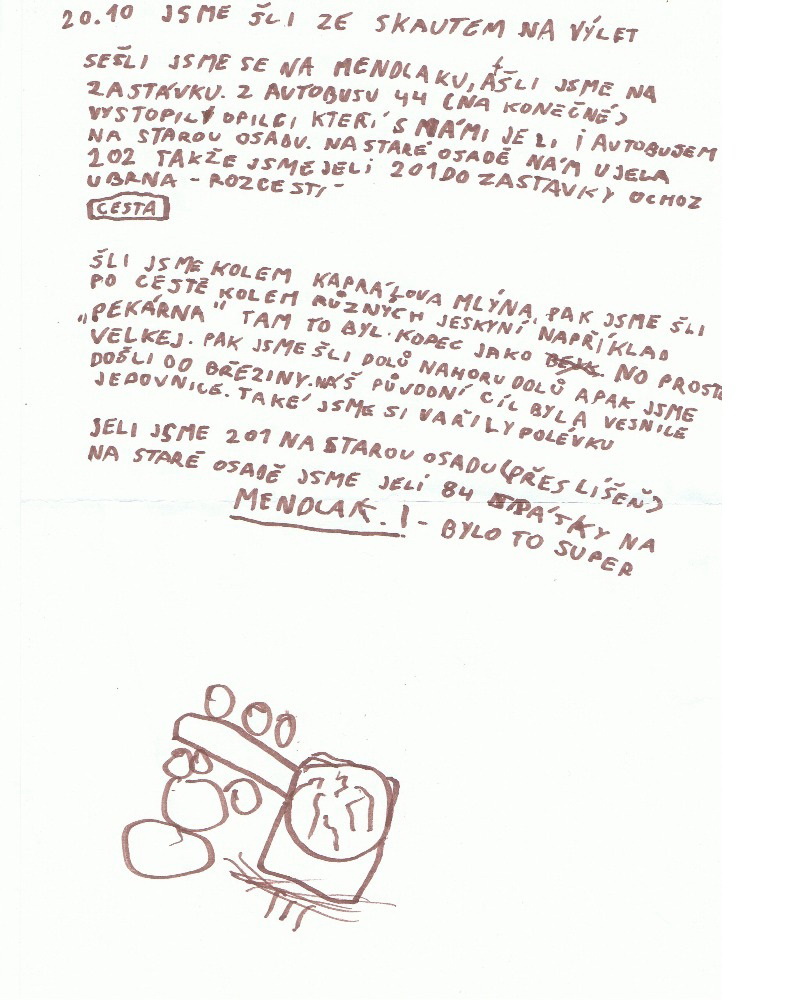 20.10 JSME ŠLI ZE SKAUTEM NA VÝLET
SEŠLI JSME SE NA MENDLAKU, A ŠLI JSME NA
ZASTÁVKU. Z AUTOBUSU 44 (NA KONEČNÉ)
VYSTOPILI OPILCI KTEŘÍ S NÁMI JELI I AUTOBUJEM
NA STAROU OSADU. NA STARÉ OSADĚ NÁM UJELA
202 TAKŽE JSME JELI 201 DO ZASTÁVKY OCHOZ
U BRNA - ROZCESTÍ
CESTA
ŠLI JSME KOLEM KAPRÁLOVA MLÝNA. PAK JSME ŠLI
PO CESTĚ KOLEM RŮZNÝCH JESKYNÍ NAPŘÍKLAD
„PEKÁRNA" TAM TO BYL KOPEC JAKO NO PROSTĚ
VELKEJ. PAK JSME ŠLI DOLŮ NAHORU DOLŮ A PAK JSME
DOŠLI DO BŘEZINY. NÁŠ PŮVODNÍ CÍL BYLA VESNICE
JEDOVNICE. TAKÉ JSME SI VAŘILY POLÉVKU
JELI JSME 201 NA STAROU OSADU (PŘES LÍŠEŇ)
NA STARÉ OSADĚ JSME JELI 84 SPÁTKY NA
MENDLAK. ! - BYLO TO SUPER